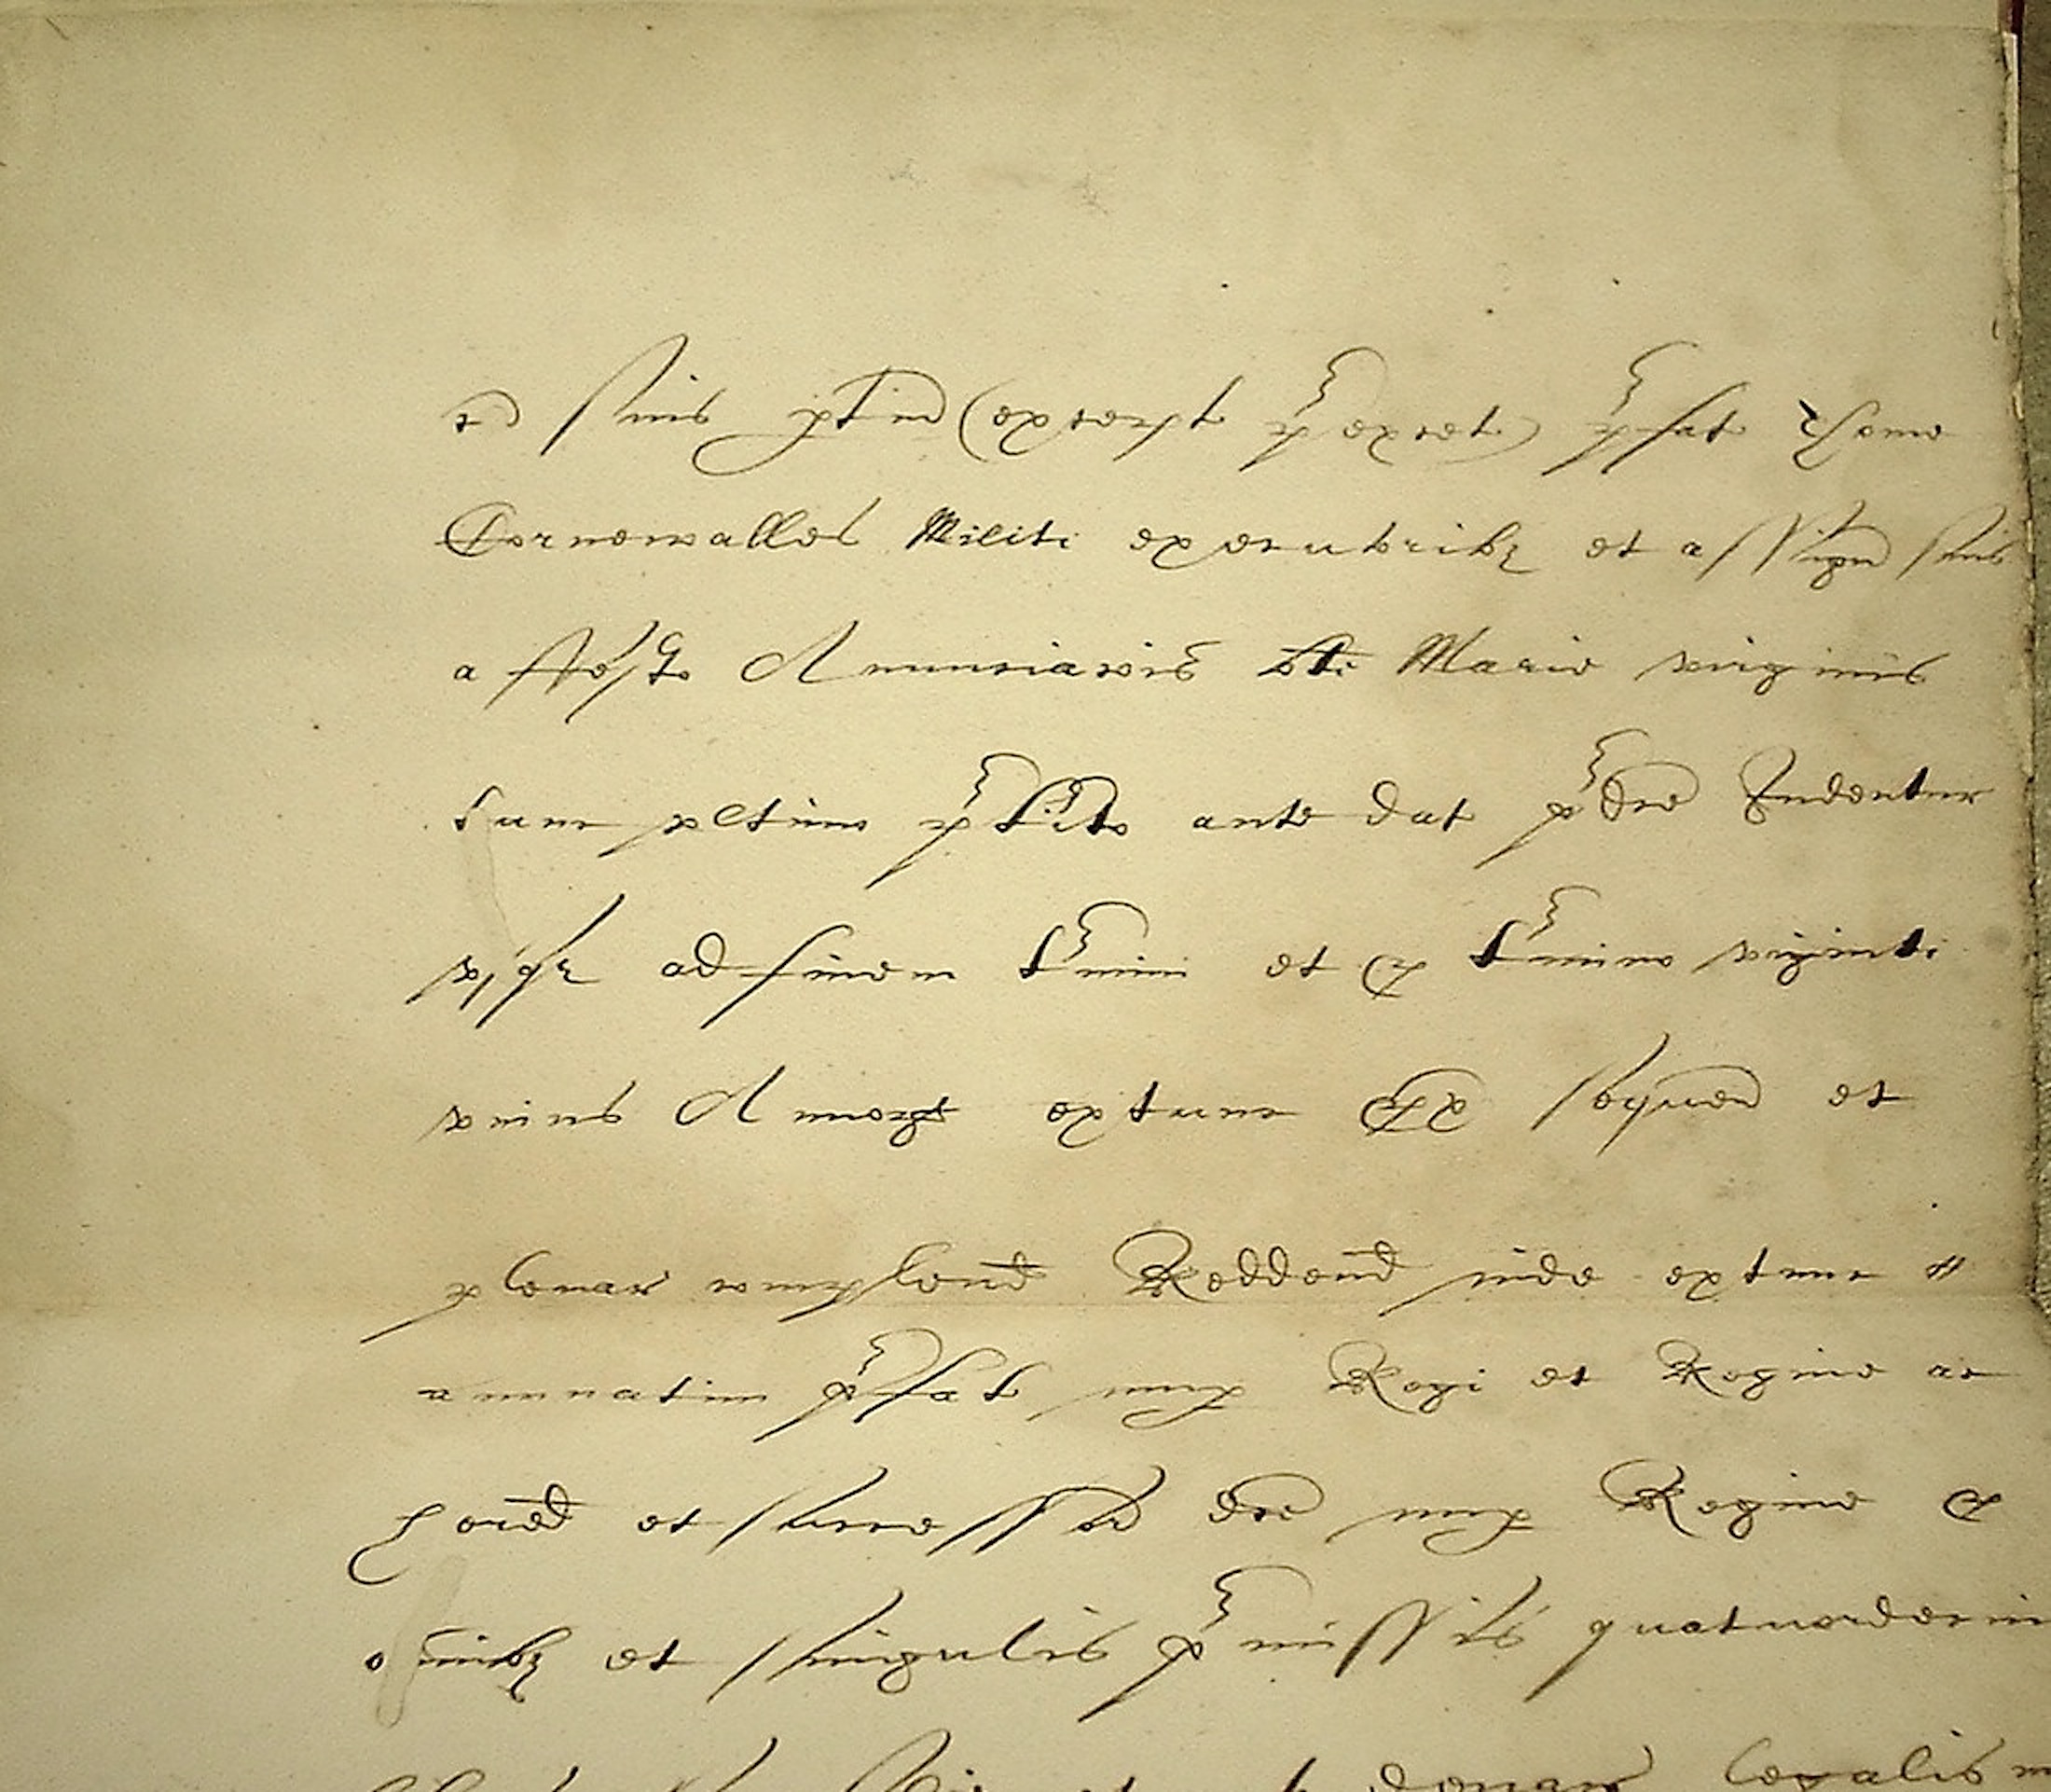 suis ptin (except p'except) p'fat Thome
Cornewalles Militi executoribz et assign suis
a ffesto Annunciacois bte Marie virginis
tunc ultimo p'terito ante dat p'dce Indentur
usqz ad finem t'mini et p t'mino viginti
unius Annorum extunc px sequen et
plenar complend Reddend inde extunc //
annuatim p'fat nup Regi et Regine ac
hered et successor dce nup Regine p
omibz et singulis p'missis quatuordecim
legalis